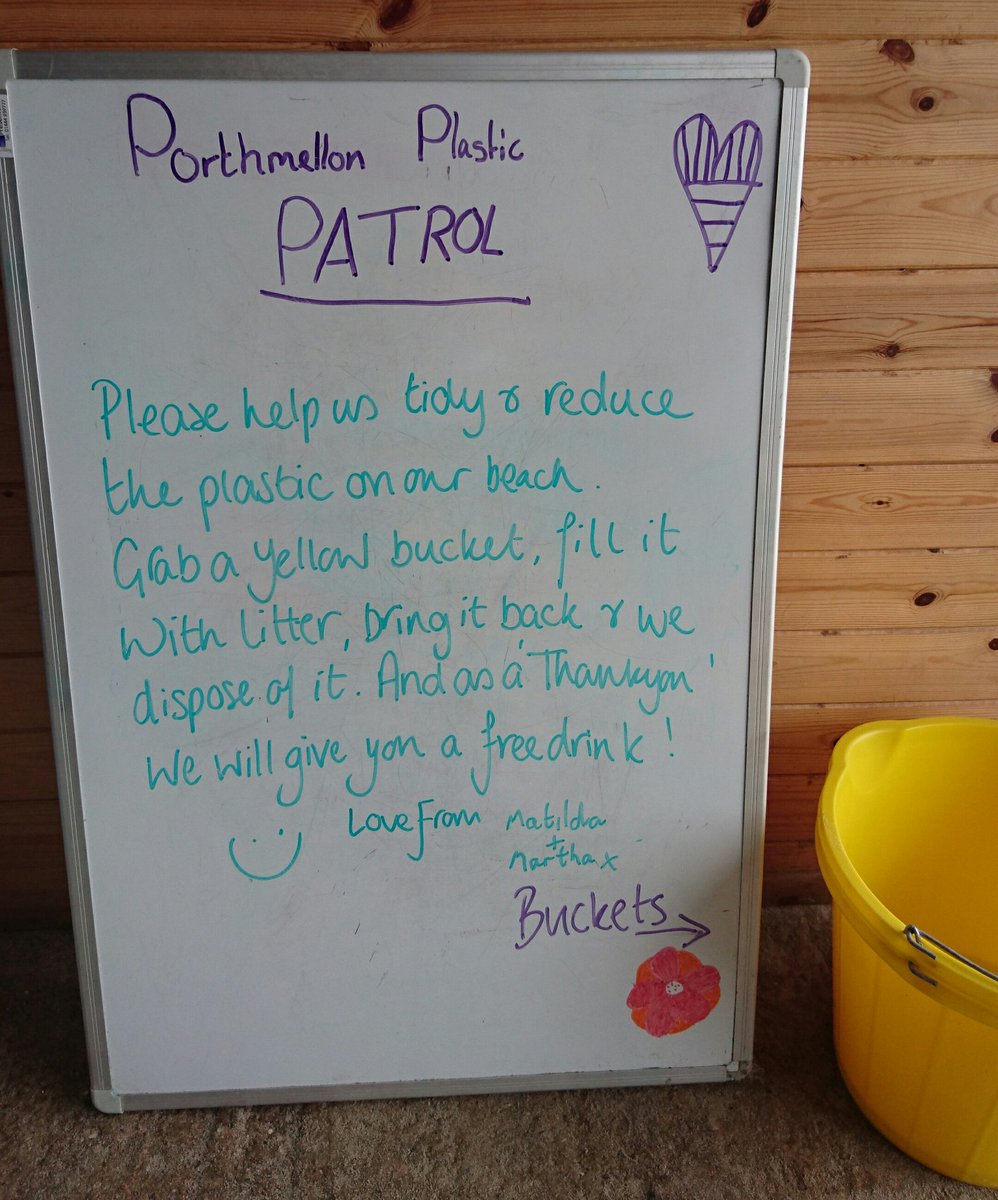 Porthmellon Plastic
PATROL
Please help us tidy & reduce
the plastic on our beach.
Grab a yellow bucket, fill it
with litter, bring it back & we
dispose of it. And as a 'Thankyou'
We will give you a free drink!
Love From Matilda
+
Martha x
Buckets